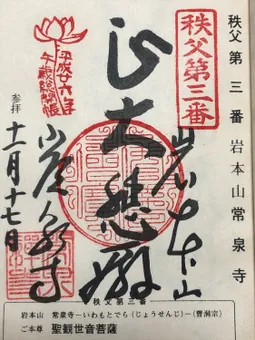 秩父第三番岩本山常泉寺
秩父第三番
平成廿六年
午歳総開帳
正大悲殿
岩本山
常泉寺
参拝
十一月十七日
秩父第三番
岩本山 常泉寺―いわもとでら(じょうせんじ)―(曹洞宗)
ご本尊 聖観世音菩薩